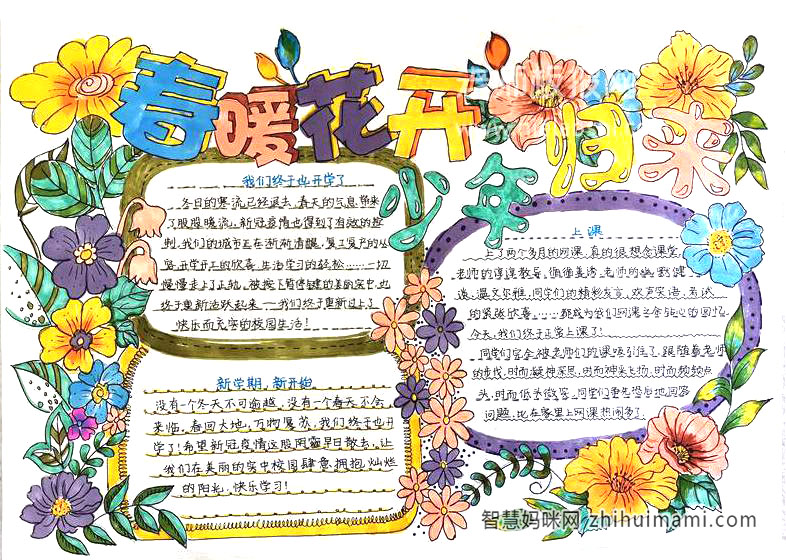 春暖花开
少年归来
我们终于也开学了
冬日的寒流已经退去,春天的气息带来
了股股暖流,新冠疫情也得到了有效的控
制,我们的城市正在渐渐清醒,复工复产的人
开学开工的欣喜,生活学习的轻松……一切
慢慢走上了正轨。被按下暂停键的美丽实中也
终于重新活跃起来——我们终于重新过上了
快乐而充实的校园生活!
新学期,新开始
没有一个冬天不可逾越,没有一个春天不会
来临。春回大地,万物复苏,我们终于也开
学了!希望新冠疫情这股阴霾早日散去,让
我们在美丽的实中校园肆意拥抱灿烂
的阳光,快乐学习!
上课
上了两个多月的网课,真的很想念课堂,
老师的谆谆教导,循循善诱,老师的幽默健
谈,温文尔雅,同学们的精彩发言,欢声笑语,考试
的紧张欣喜……都成为我们网课之余谈心的回忆
今天,我们终于正常上课了!
同学们完全被老师们的课吸引住了,跟随着老师
的步伐,时而凝神深思,时而神采飞扬,时而频频点
头,时而低头微笑,同学们争先恐后地回答
问题,比在家里上网课热闹多了。
智慧妈咪网 zhihuimami.com